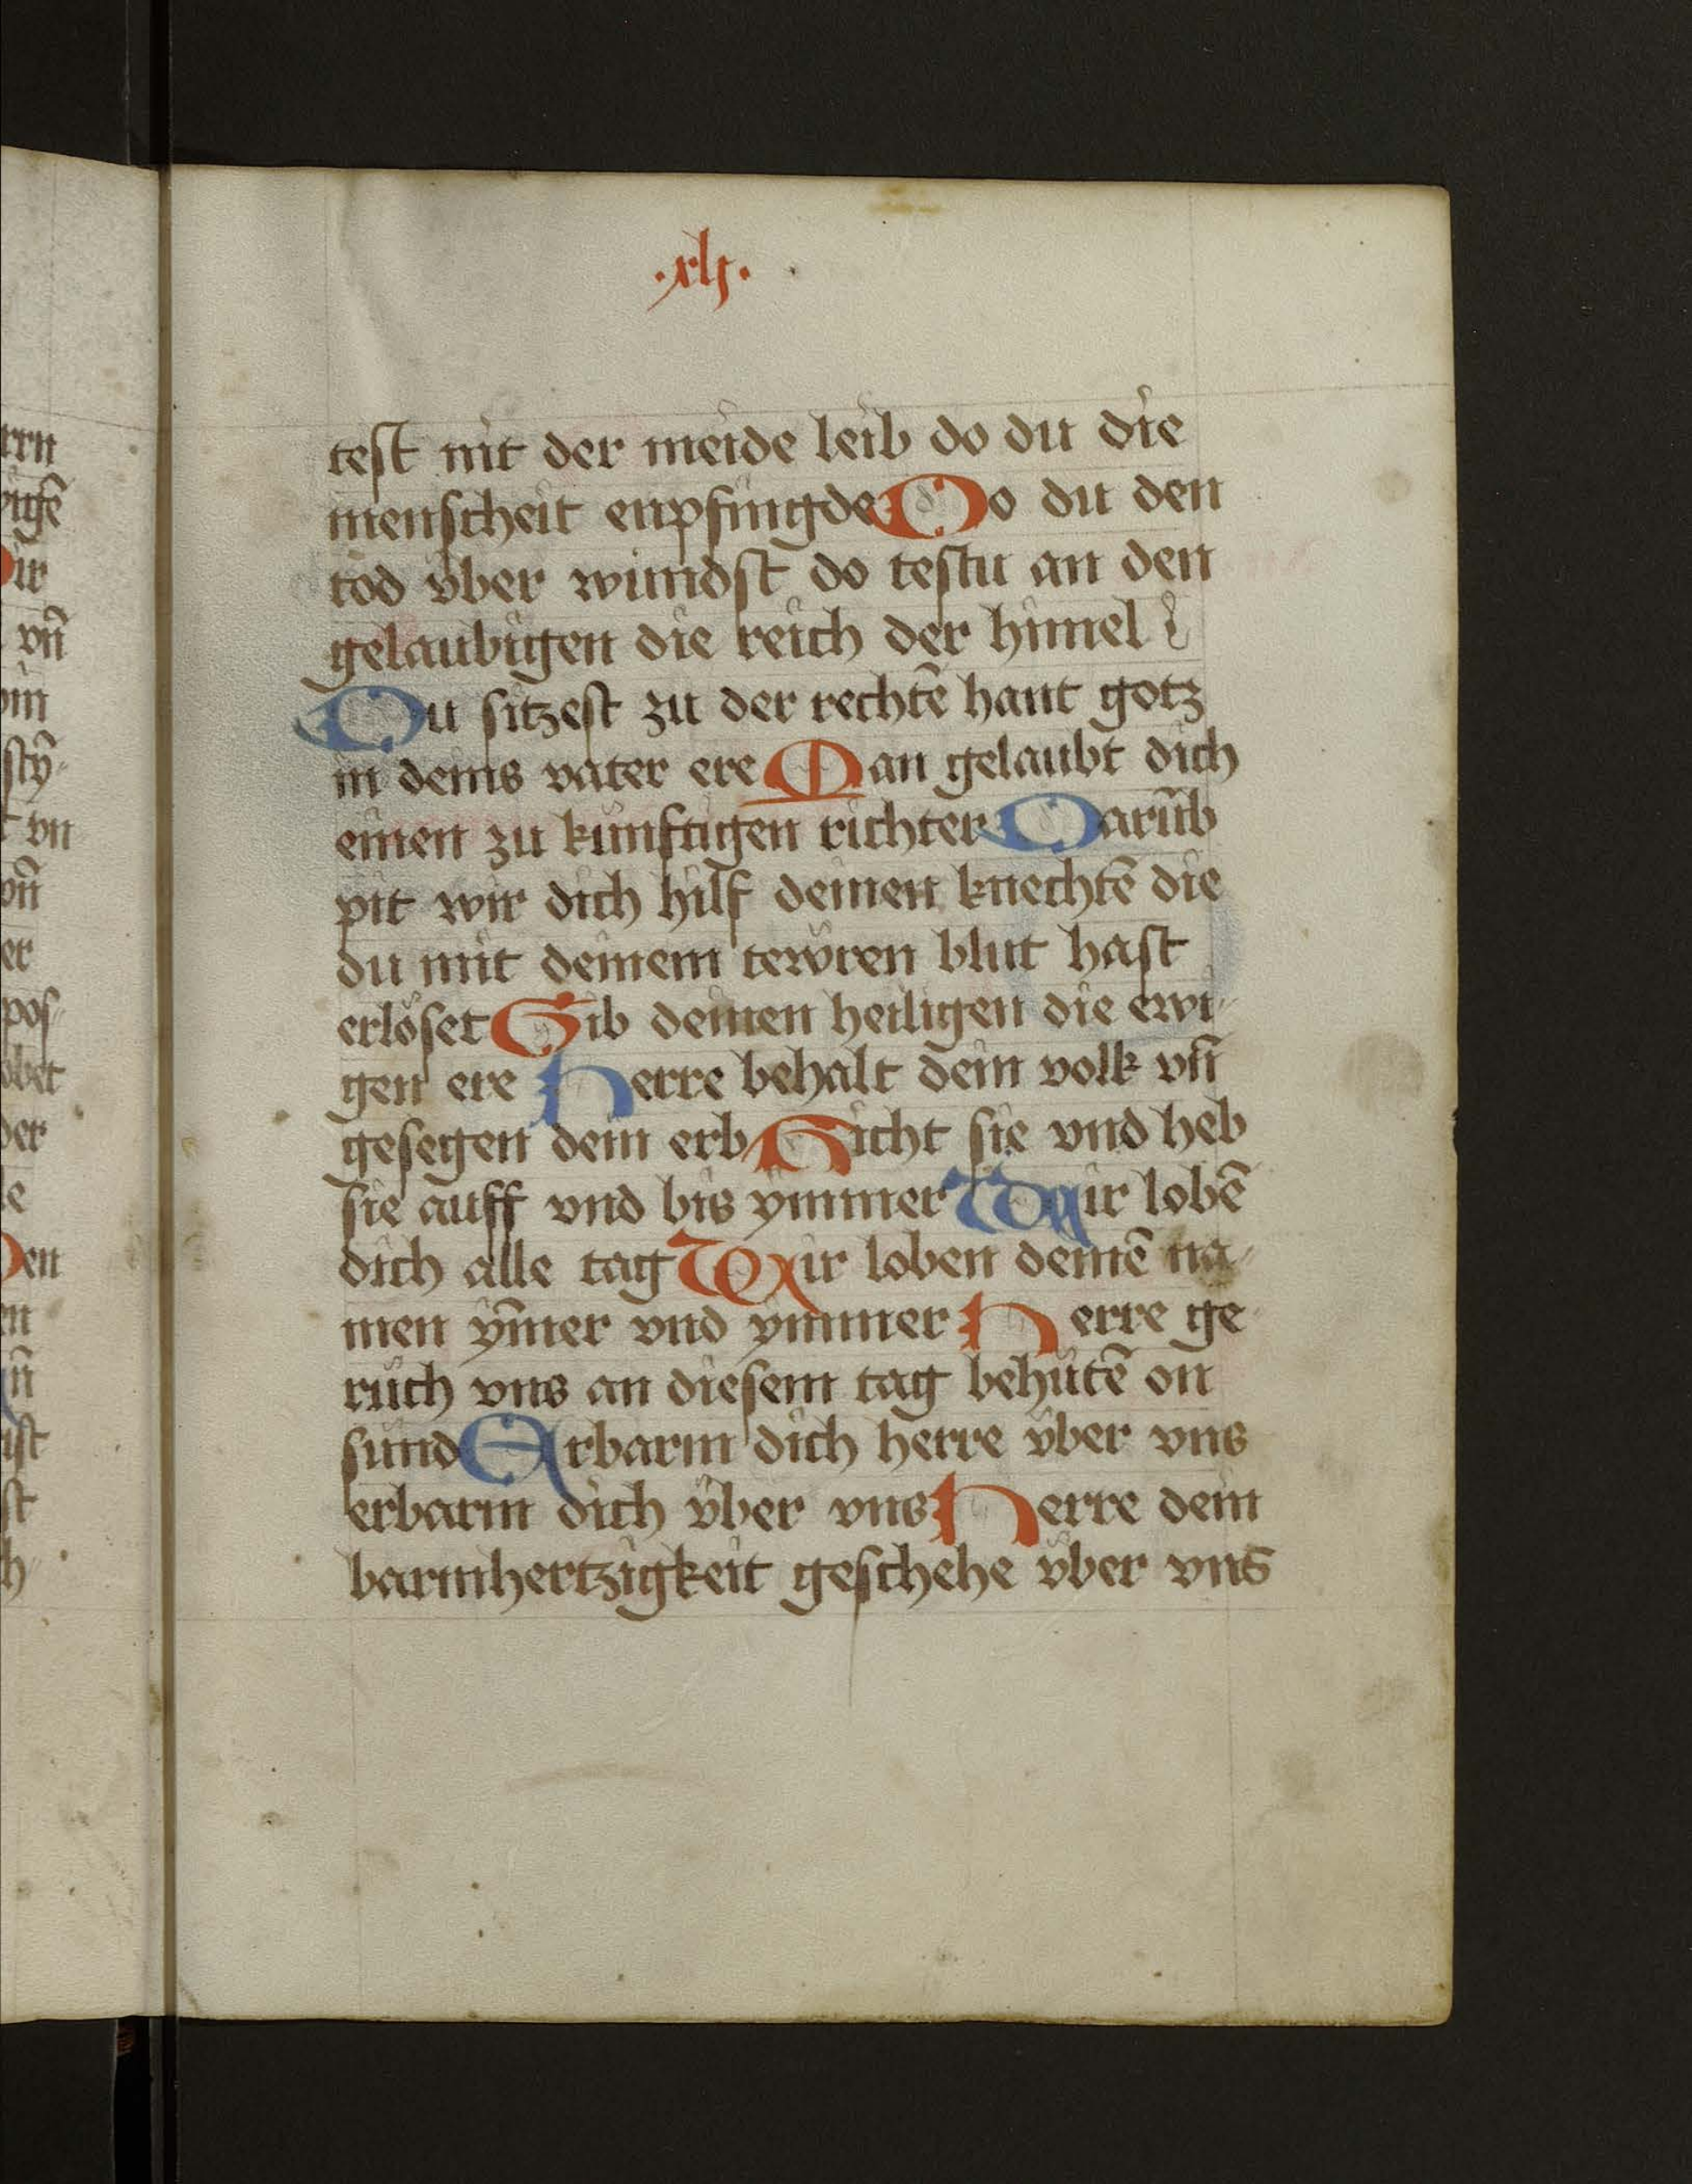 ·xlj·
test nit der meide leib do du die
menscheit enpfingde Do du den
tod vber windst do testu an den
gelaubigen die reich der himel
Du sitzest zu der rechtē hant gotz
in deins vater ere Man gelaubt dich
einen zu kunftigen richter Darūb
pit wir dich hilf deinen knechtē die
du mit deinem tewren blut hast
erlöset Gib deinen heiligen die ewi-
gen ere Herre behalt dein volk vn̄
gesegen dein erb Richt sie vnd heb
sie auff vnd bis ymmer Wir lobē
dich alle tag Wir loben deinē na-
men ym̄er vnd ymmer Herre ge
ruch vns an diesem tag behütē on
sund Erbarm dich herre vber vns
erbarm dich vber vns Herre dein
barmhertzigkeit geschehe vber vns